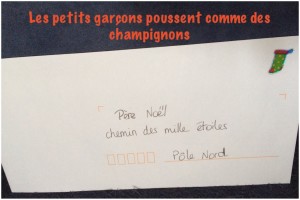 Les petits garçons poussent comme des
champignons
Père Noël
chemin des mille étoiles
Pôle Nord